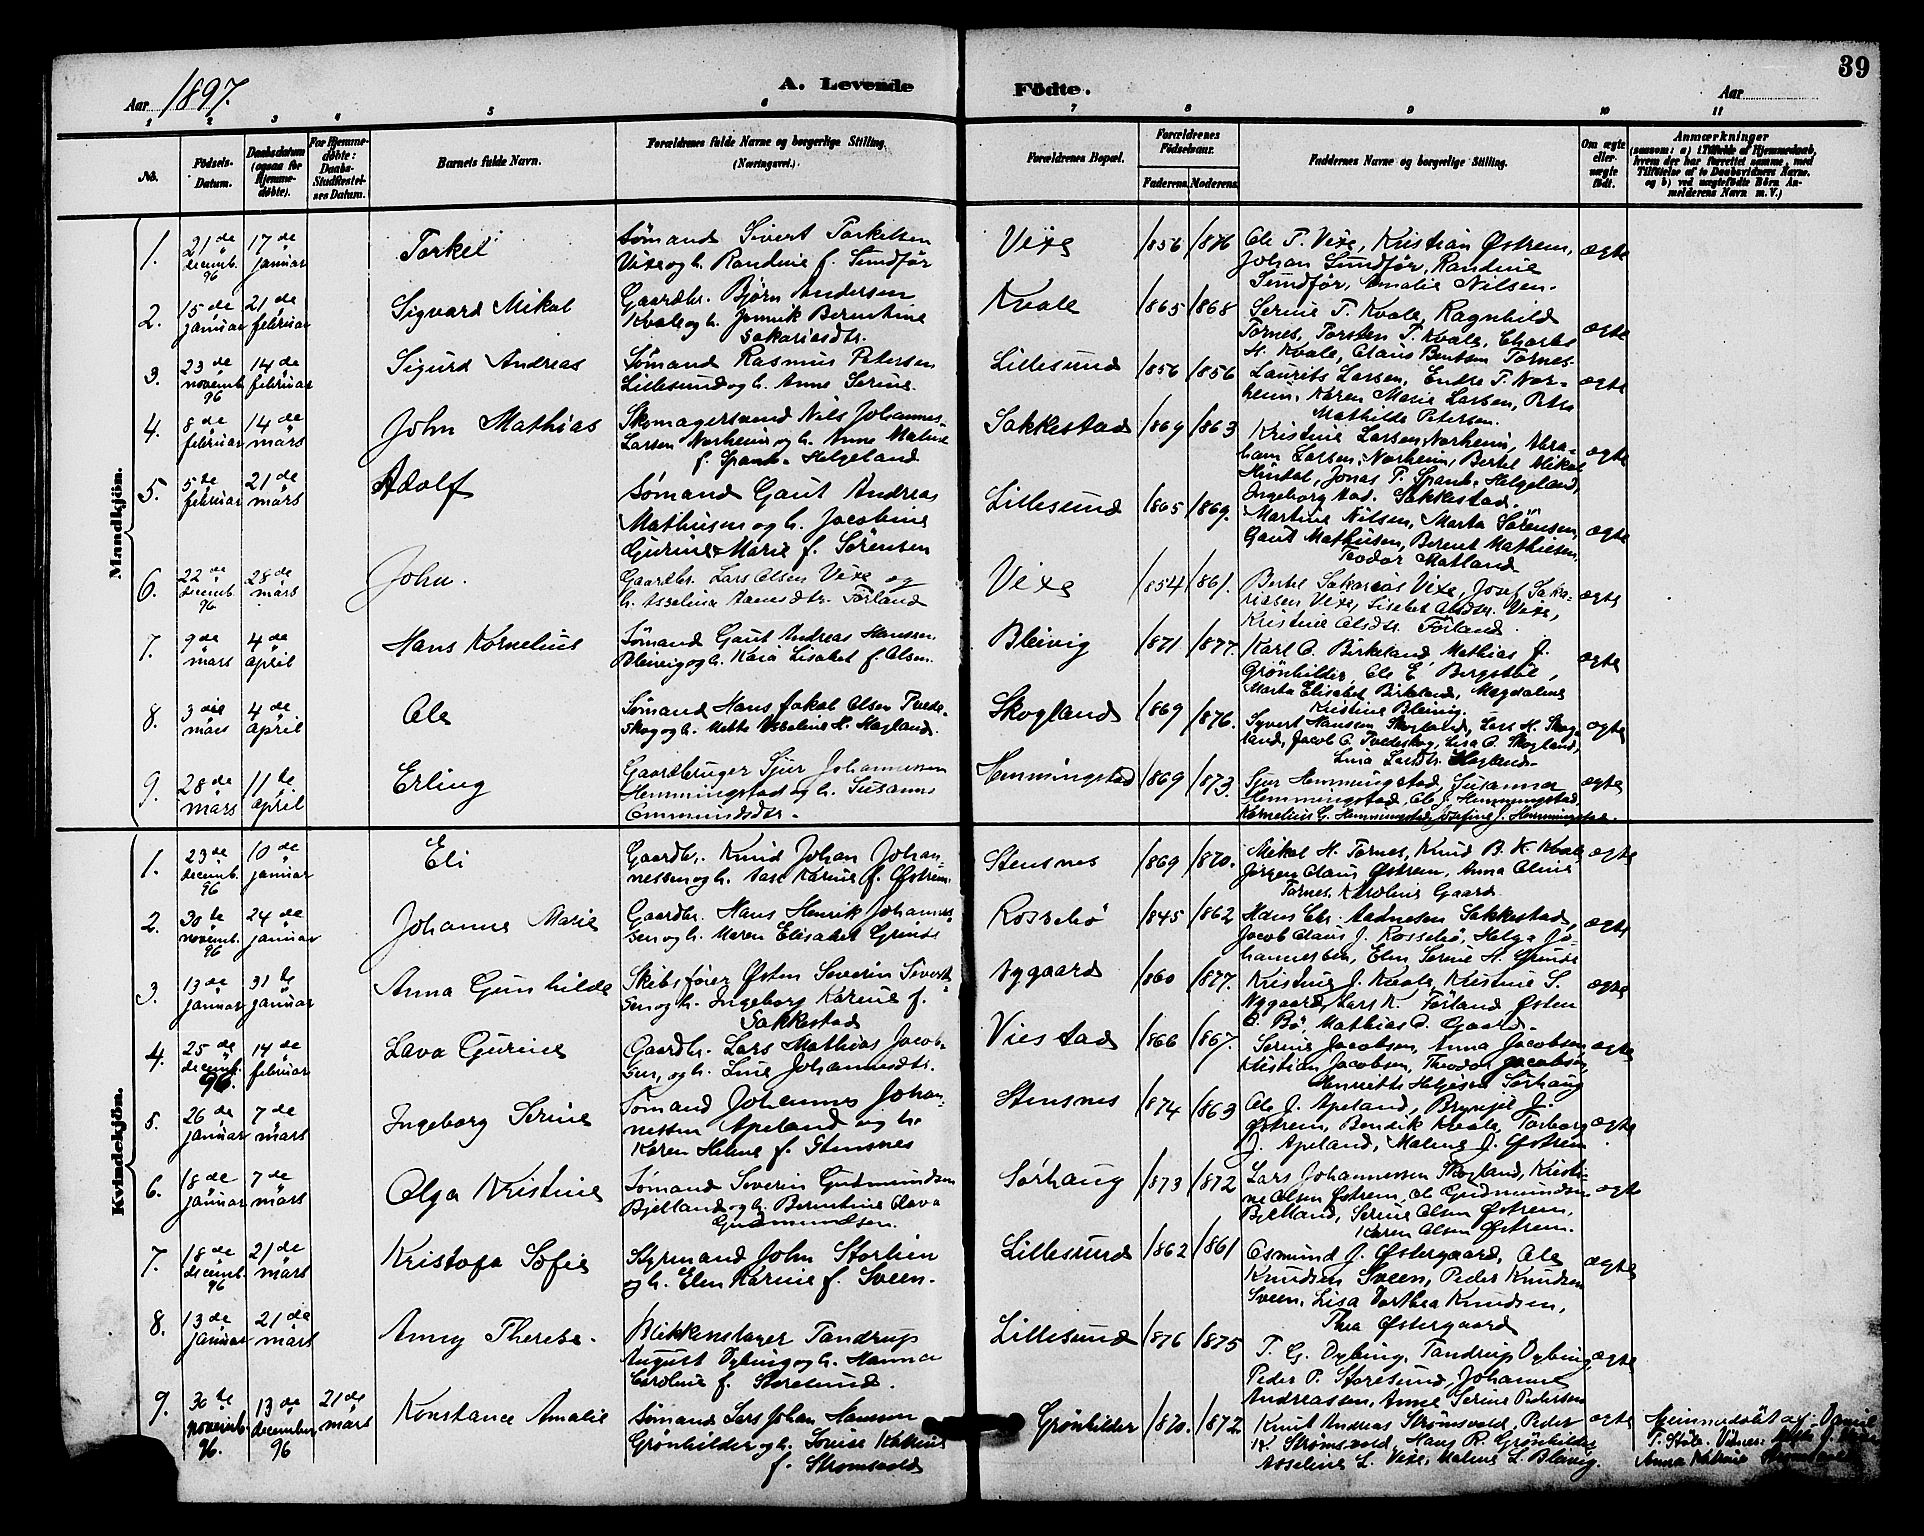 39
Aar 1897. A. Levende Födte. Aar
1 2 3 4 5 6 7 8 9 10 11
No.
Födsels-
Datum.
Daabsdatum
(ogsaa for
Hjemme-
døbte).
For Hjemme-
döbte:
Daabs-
Stadfæstel-
ses Datum.
Barnets fulde Navn.
Forældrenes fulde Navne og borgerlige Stilling.
(Næringsvei.)
Forældrenes Bopæl.
Forældrenes
Födselsaar.
Faderens. Moderens.
Faddernes Navne og borgerlige Stilling.
Om ægte
eller
uægte
født.
Anmærkninger
(saasom: a) i Tilfælde af Hjemmedaab,
hvem der har forrettet samme, med
Tilføielse af to Daabsvidners Navne,
og b) ved uægtefødte Börn An-
melderens Navn m. V.)
Mandkjön.
1. 21de decemb. 96 17de januar Torkel
Sømand Sivert Torkelsen
Vixe og h. Randine f. Sundför
Vixe 1856 1876
Ole T. Vixe, Kristian Østrem,
Johan Sundför, Randine
Sundför, Amalie Nilsen.
ægte
2. 15de januar 21de februar Sigvard Mikal
Gaardbr. Bjørn Andersen
Kvale og h. Jennik Berntine
Sakariasdtr.
Kvale 1865 1868
Serine T. Kvale, Ragnhild
Tornes, Torsten T. Kvale, Charles
H. Kvale, Claus Bentsen Tornes.
ægte
3. 23de novemb. 96 14de februar Sigurd Andreas
Sømand Rasmus Petersen
Lillesund og h. Anne Serine.
Lillesund 1856 1856
Laurits Larsen, Endre T. Nor-
heim, Karen Marie Larsen, Petra
Mathilde Petersen.
ægte
4. 8de februar 14de mars John Mathias
Skomagersvend Nils Johannes
Larsen Norheim og h. Anne Malene
f. Spanb. Helgeland
Sakkestad 1869 1863
Kristine Larsen Norheim, Abra-
ham Larsen, Norheim, Bertel Mikal
Hindal, Jonas T. Spanb. Helgeland,
Ingeborg Sakkestad.
ægte
5. 5te februar 21de mars Adolf
Sømand Gaut Andreas
Mathisen og h. Jacobine
Gurine Marie f. Sörensen
Lillesund 1865 1869.
Martine Nilsen, Marta Sörensen,
Gaut Mathisen, Berent Mathisen,
Teodor Matland
ægte
6. 22de decemb. 96 28de mars John.
Gaardbr. Lars Olsen Vixe og
h. Asseline Aanesdtr. Förland
Vixe 1854 1861.
Bertel Sakarias Vixe, Josef Saka-
riasen Vixe, Lisabet Olsdtr. Vixe,
Kristine Olsdtr. Förland.
ægte
7. 9de mars 4de april Hans Kornelius
Sømand Gaut Andreas Hansen
Bleivig og h. Kaia Lisabet f. Olsen.
Bleivig 1871 1877.
Karl O. Birkeland Mathias J.
Grönhilder, Ole E. Bergstøl,
Marta Elisabet Birkeland, Magdalene
Kristine Bleivig.
ægte
8. 3die mars 4de april Ole
Sømand Hans Jakob Olsen Tvede-
skog og h. Mette Asseline H. Hagland.
Skogland 1869 1876.
Syvert Hansen Skogland, Lars H. Skog-
land, Jacob O. Tvedeskog, Lisa O. Skogland,
Lina Larsdtr. Hagland.
ægte
9. 28de mars 11te april Erling
Gaardbruger Sjur Johannessen
Hemmingstad og h. Susanne
Ommundsdtr.
Hemmingstad 1869 1873.
Sjur Hemmingstad, Susanna
Hemmingstad, Ole J. Hemmingstad,
Kornelius G. Hemmingstad, Josefine J. Hemmingstad.
ægte
Kvindekjön.
1. 23de decemb. 96 10de januar Eli
Gaardbr. Knud Johan Johan-
nessen og h. Aase Karine f. Østrem.
Stensnes 1869 1870.
Mikal H. Tornes, Knud B. K. Kvale,
Jørgen Claus Østrem, Anna Oline
Tornes, Karoline Gaard.
ægte
2. 30te novemb. 96 24de januar Johanne Marie
Gaardbr. Hans Henrik Johannes-
sen og h. Maren Elisabet Grinde
Rossebö 1845 1862
Hans Chr. Aadnesen Sakkestad,
Jacob Claus J. Rossebö, Helga Jo-
hannesen, Elen Serine H. Grinde
ægte
3. 13de januar 31te januar Anna Gunhilde
Skibsfører Østen Severin Sivert-
sen og h. Ingeborg Karine f.
Sakkestad
Nygaard 1860 1877.
Kristine J. Kvale, Kristine S.
Nygaard, Lars K. Förland Østen
E. Bö, Mathias O. Gaard.
ægte
4. 25de decemb. 96. 14de februar Lava Gurine
Gaardbr. Lars Mathias Jacob-
sen, og h. Line Johannesdtr.
Viestad 1866 1867.
Serine Jacobsen, Anna Jacobsen,
Kristian Jacobsen, Theodor Jacobsen
Henriette Helgesen Sørhaug
ægte
5. 26de januar 7de mars Ingeborg Serine
Sømand Johannes Johan-
nessen Apeland og h.
Karen Helene f. Stensnes
Stensnes 1874 1863
Ole J. Apeland, Brynjel J.
Østrem, Bendik Kvale, Torborg
J. Apeland, Malene J. Østrem
ægte
6. 18de januar 7de mars Olga Kristine
Sømand Severin Gudmundsen
Bjelland og h. Berentine Olava
Gudmundsen.
Sørhaug 1873 1872
Lars Johannessen Skogland, Kristi-
ne Olsen Østrem, Ole Gudmundsen
Bjelland, Serine Olsen Østrem,
Karen Olsen Østrem.
ægte
7. 18de decemb. 96 21de mars Kristofa Sofie
Styrmand John Storlien
og h. Elen Karine f. Sveen.
Lillesund 1862 1861
Osmund J. Østergaard, Ole
Knudsen Sveen, Peder Knudsen
Sveen, Lisa Dorthea Knudsen,
Thea Østergaard
ægte
8. 13de januar 21de mars Anny Therese.
Blikkenslager Tandrup
August Dybing og h. Hanna
Caroline f. Storesund.
Lillesund 1876 1875
T. G. Dybing, Tandrup Dybing,
Peder P. Storesund, Johanne
Andreassen, Anne Serine Pedersen
ægte
9. 30te novemb. 96. 13de december 96 21de mars Konstance Amalie
Sømand Lars Johan Hansen
Grönhilder og h. Louise Katrine
f. Strömsvold
Grönhilder 1870. 1872.
Knut Andreas Strömsvold, Peder
K. Strömsvold, Hans R. Grönhilder
Asseline L. Vixe, Malene L. Bleivig.
ægte
Heimmedöbt af Daniel
T. Støle. Vidner:
Anna Katrine